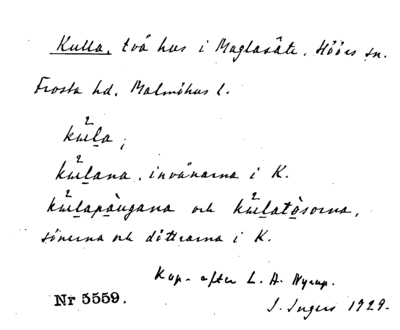 Kulla, två hus i Maglasäte, Höörs sn.
Frosta hd, Malmöhus l.
kuḷa,
kuḷana, invånarna i K.
kuḷapàugana och kuḷatòsorna,
sönerna och döttrarna i K.
Kop. efter L. A. Nyrup.
Nr 5559.
J. Ingers 1929.